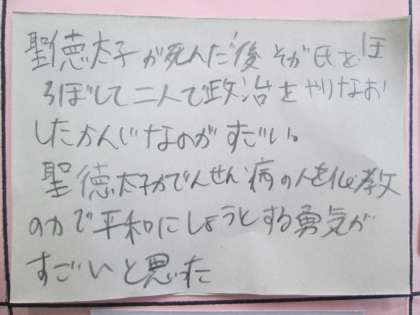 聖徳太子が死んだ後そが氏をほ
ろぼして二人で政治をやりなお
したかんじなのがすごい。
聖徳太子がでんせん病の人を仏教
の力で平和にしようとする勇気が
すごいと思った